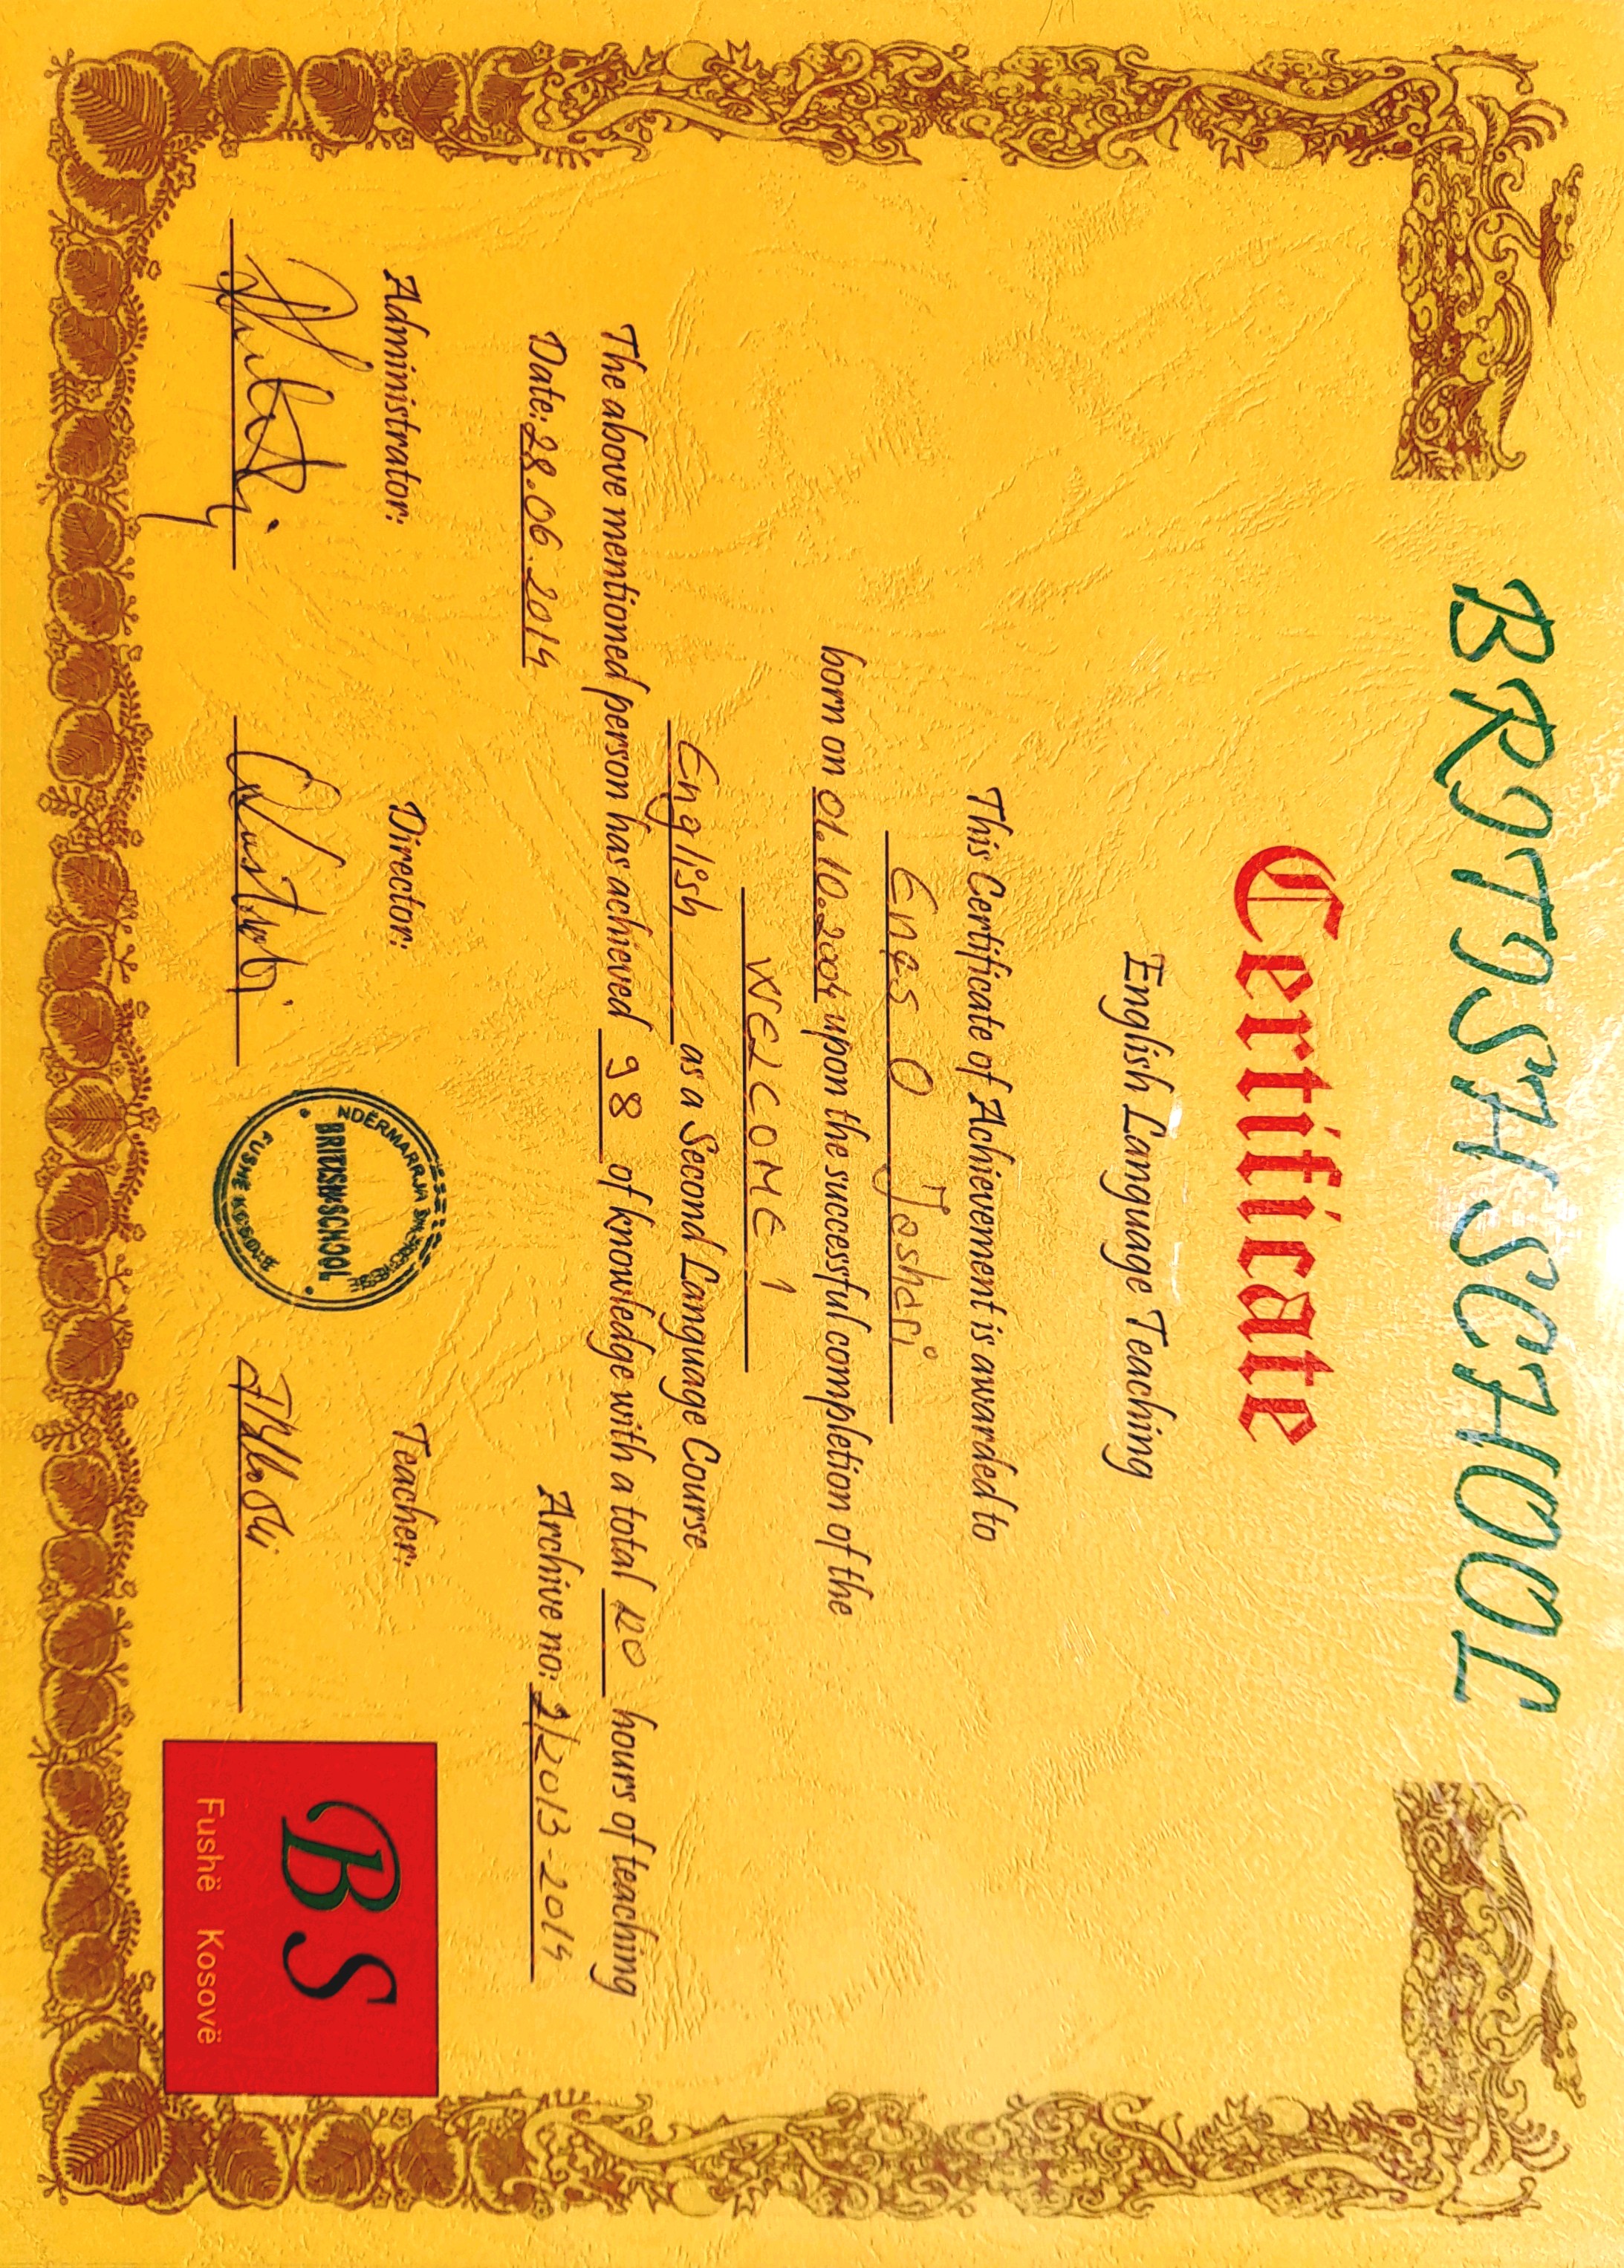 BRITISH SCHOOL
Certificate
English Language Teaching
This Certificate of Achievement is awarded to
Enes O Jashari
born on 01.10.2004 upon the successful completion of the
WELCOME 1
English as a Second Language Course
The above mentioned person has achieved 98 of knowledge with a total 120 hours of teaching
Date: 28.06.2014
Archive no: 2/2013-2014
Administrator:
Director:
Teacher:
NDËRMARRJA SHËRBYESE
BRITISH SCHOOL
FUSHË KOSOVË
BS
Fushë Kosovë